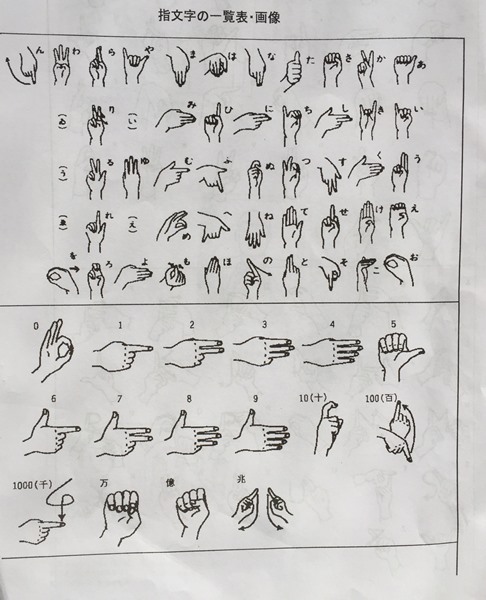 指文字の一覧表・画像
ん わ ら や ま は な た さ か あ
(ゐ) り (い) み ひ に ち し き い
(う) る ゆ む ふ ぬ つ す く う
(ゑ) れ (え) め へ ね て せ け え
を ろ よ も ほ の と そ こ お
0 1 2 3 4 5
6 7 8 9 10(十) 100(百)
1000(千) 万 億 兆